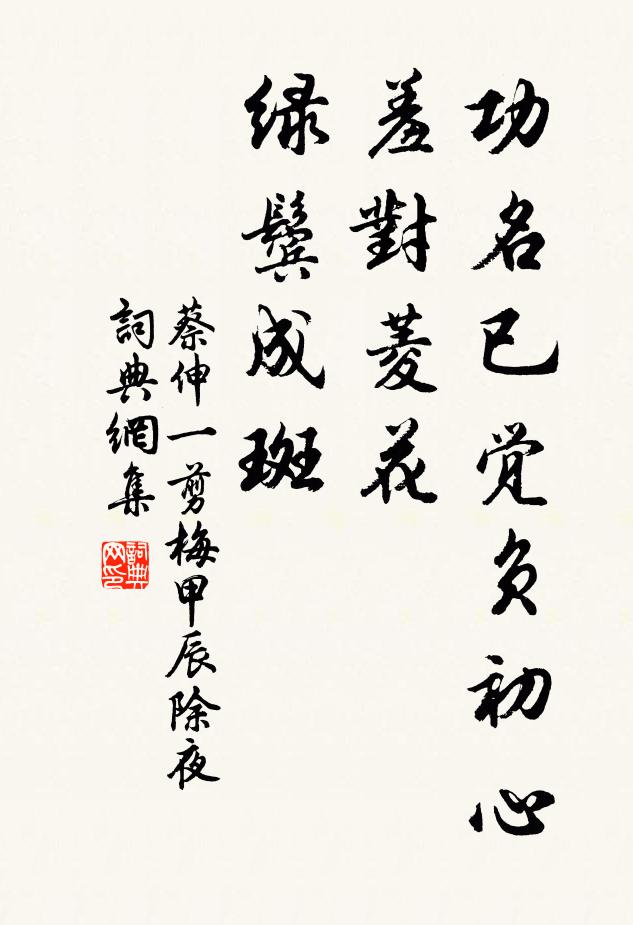 功名已觉负初心
羞對菱花
绿鬓成斑
蔡伸一剪梅甲辰除夜
詞典網集
詞典网印